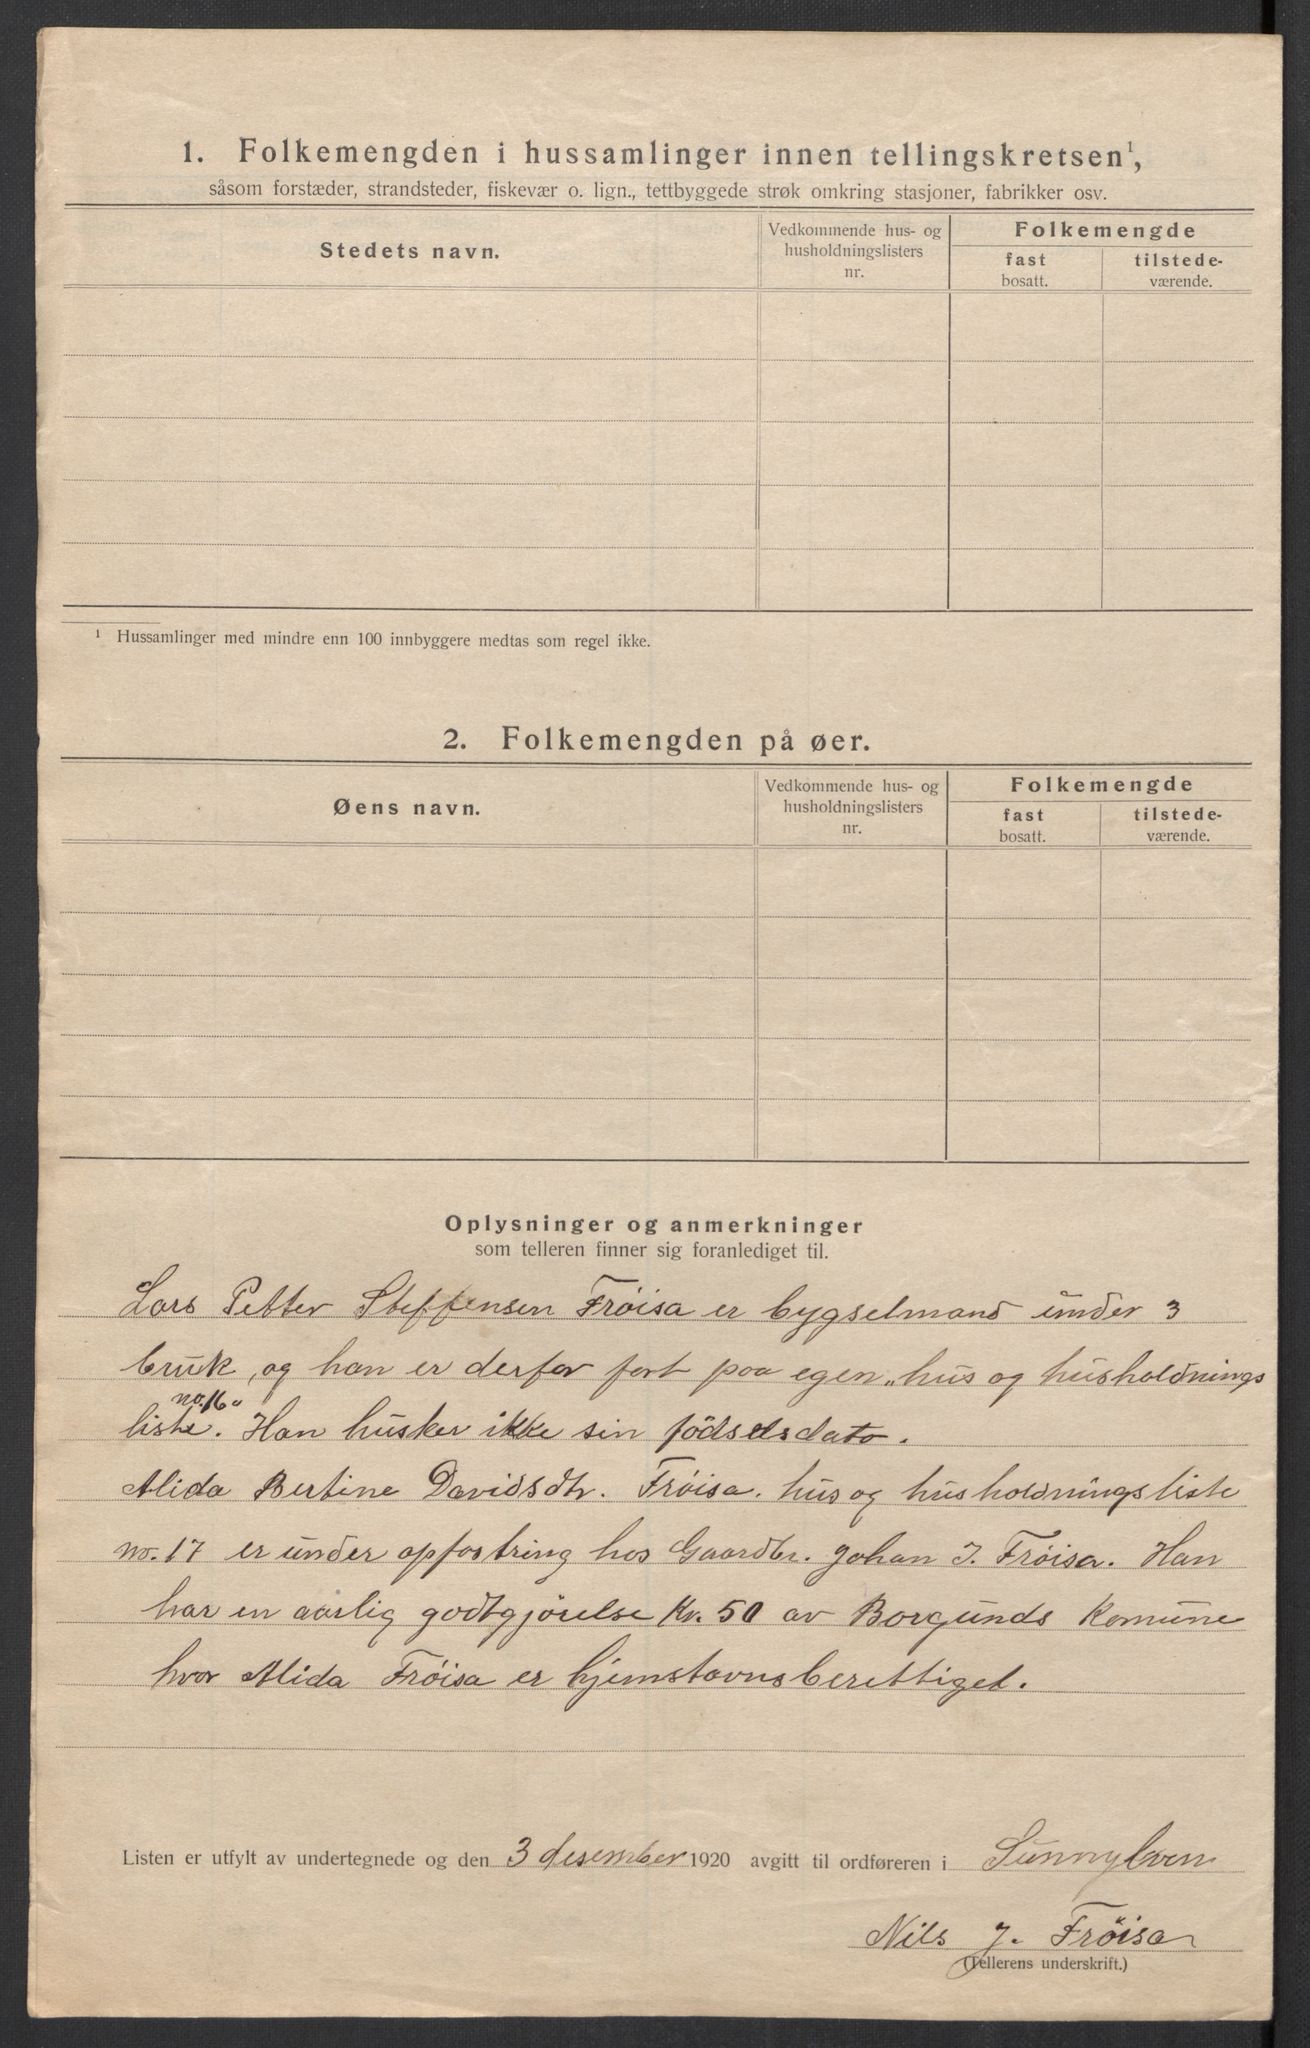 1. Folkemengden i hussamlinger innen tellingskretsen¹,
såsom forstæder, strandsteder, fiskevær o. lign., tettbyggede strøk omkring stasjoner, fabrikker osv.
Stedets navn.
Vedkommende hus- og
husholdningslisters
nr.
Folkemengde
fast
bosatt.
tilstede-
værende.
¹ Hussamlinger med mindre enn 100 innbyggere medtas som regel ikke.
2. Folkemengden på øer.
Øens navn.
Vedkommende hus- og
husholdningslisters
nr.
Folkemengde
fast
bosatt.
tilstede-
værende.
Oplysninger og anmerkninger
som telleren finner sig foranlediget til.
Lars Petter Steffensen Frøisa er bygselmand under 3
bruk, og han er derfor ført paa egen „hus og husholdnings
no. 16"
liste. Han husker ikke sin födselsdato.
Alida Bertine Davidsdtr. Frøisa. hus og husholdningsliste
no. 17 er under opfostring hos Gaardbr. Johan J. Frøisa. Han
har en aarlig godtgjörelse Kr. 50 av Borgunds Komune
hvor Alida Frøisa er hjemstavnsberettiget.
Listen er utfylt av undertegnede og den 3 desember 1920 avgitt til ordføreren i Sunnylven
Nils J. Fröisa
(Tellerens underskrift.)